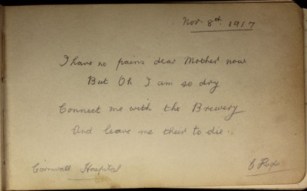 Nov. 8th 1917
I have no pains dear Mother now
But Oh I am so dry
Connect me with the Brewery
And leave me there to die.
Cornwall Hospital